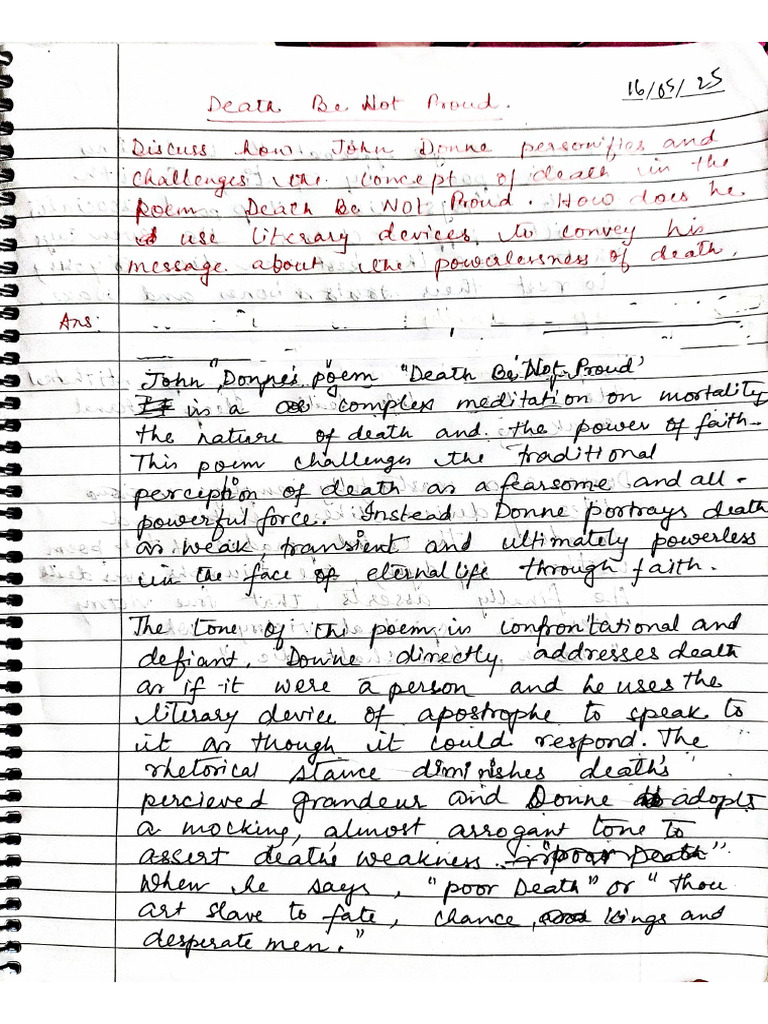 16/05/25
Death Be Not Proud.
Discuss how John Donne personifies and
challenges the concept of death in the
Poem Death Be NOT Proud. How does he
use literary devices to convey his
message about the powerlessness of death.
Ans:
John Donne's poem "Death Be Not Proud"
is a complex meditation on mortality
the nature of death and the power of faith.
This poem challenges the traditional
perception of death as a fearsome and all-
powerful force. Instead Donne portrays death
as weak, transient and ultimately powerless
in the face of eternal life through faith.
The tone of the poem is confrontational and
defiant, Donne directly addresses death
as if it were a person and he uses the
literary device of apostrophe to speak to
it as though it could respond. The
rhetorical stance diminishes death's
percieved grandeur and Donne adopts
a mocking, almost arrogant tone to
assert death's weakness. "poor Death".
When he says, "poor Death" or "thou
art slave to fate, chance, kings and
desperate men."